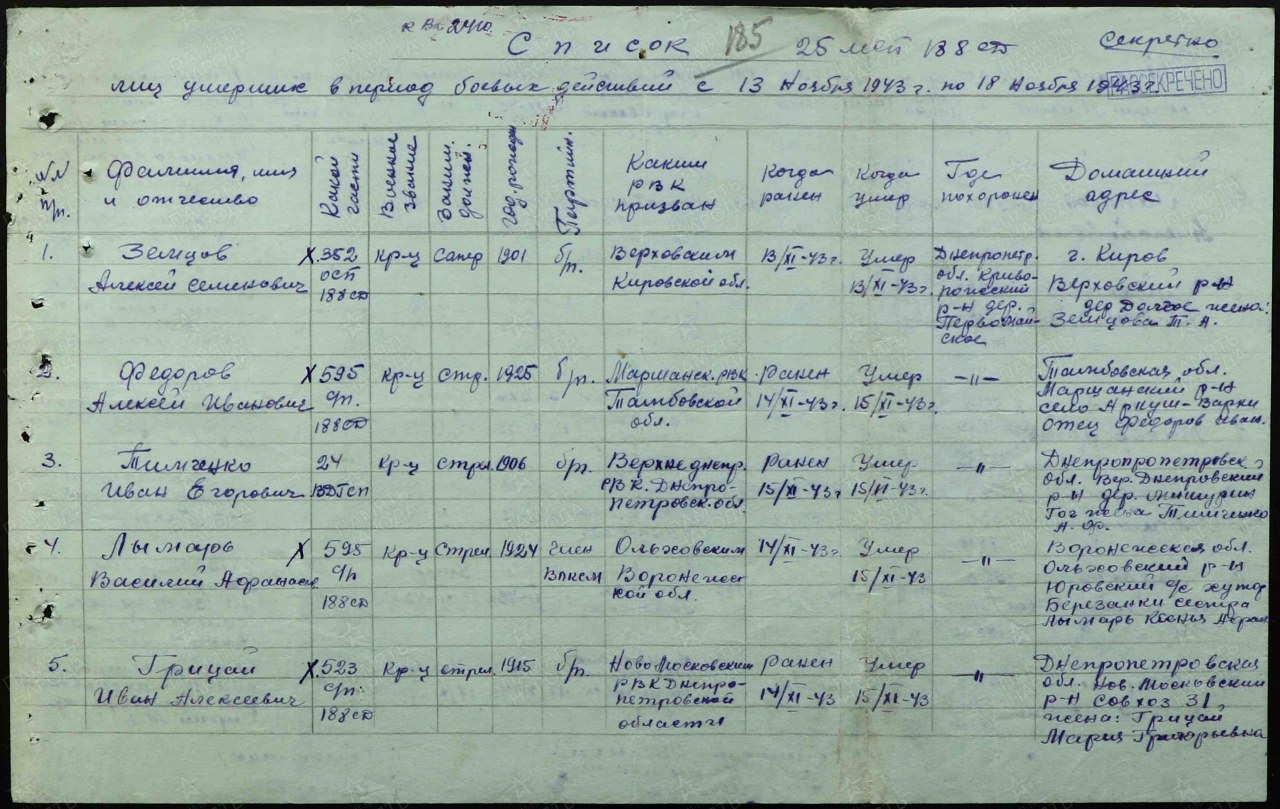 Список 185 25 мсб 188 сд Секретно
лиц умерших в период боевых действий с 13 Ноября 1943 г. по 18 Ноября 1943 г.
РАССЕКРЕЧЕНО
№№ п/п.
Фамилия, имя и отчество
Какой части
Военное звание
Заним. должн.
год рожден
Партийн.
Каким РВК призван
Когда ранен
Когда умер
Где похоронен
Домашний адрес
1. Земцов Х 352 кр-ц сапер 1901 б/п. Верховским 13/XI-43 г. Умер Днепропетр. г. Киров
Алексей Семенович осп Кировской обл. 13/XI-43 г. обл. Криво- Верховский р-н
188 сд рожский дер Долгое жена:
р-н дер. Земцова Т. А.
Первомай-
ское
2. Федоров Х 595 кр-ц стр. 1925 б/п. Маршанск. РВК Ранен Умер —"— Тамбовская обл.
Алексей Иванович с/п. Тамбовской 14/XI-43 г. 15/XI-43 г. Маршанский р-н
188 сд обл. село Аркуш-Варки
отец Федоров Иван.
3. Тимченко 24 кр-ц стрел. 1906 б/п. Верхнеднепр. Ранен Умер —"— Днепропетровск
Иван Егорович вдгсп РВК. Днепро- 15/XI-43 г. 15/XI-43 г. обл. Вер. Днепровский
петровск. обл. р-н дер. Мишурин
Рог жена Тимченко
4. Лымарь Х 595 кр-ц Стрел 1924 член Ольховским 14/XI-43 г. Умер —"— Воронежская обл.
Василий Афанасьев с/п ВЛКСМ Воронежс 15/XI-43 Ольховский р-н
188 сд кой обл. Юровский с/с хутор
Березанки сестра
Лымарь Ксенья Афан
5. Грицай Х. 523 кр-ц стрел. 1915 б/п. Новомосковским Ранен Умер —"— Днепропетровская
Иван Алексеевич с/п. РВК Днепро- 14/XI-43 15/XI-43 обл. Нов. Московский
188 сд петровской р-н Совхоз 31
области жена: Грицай
Мария Григорьевна